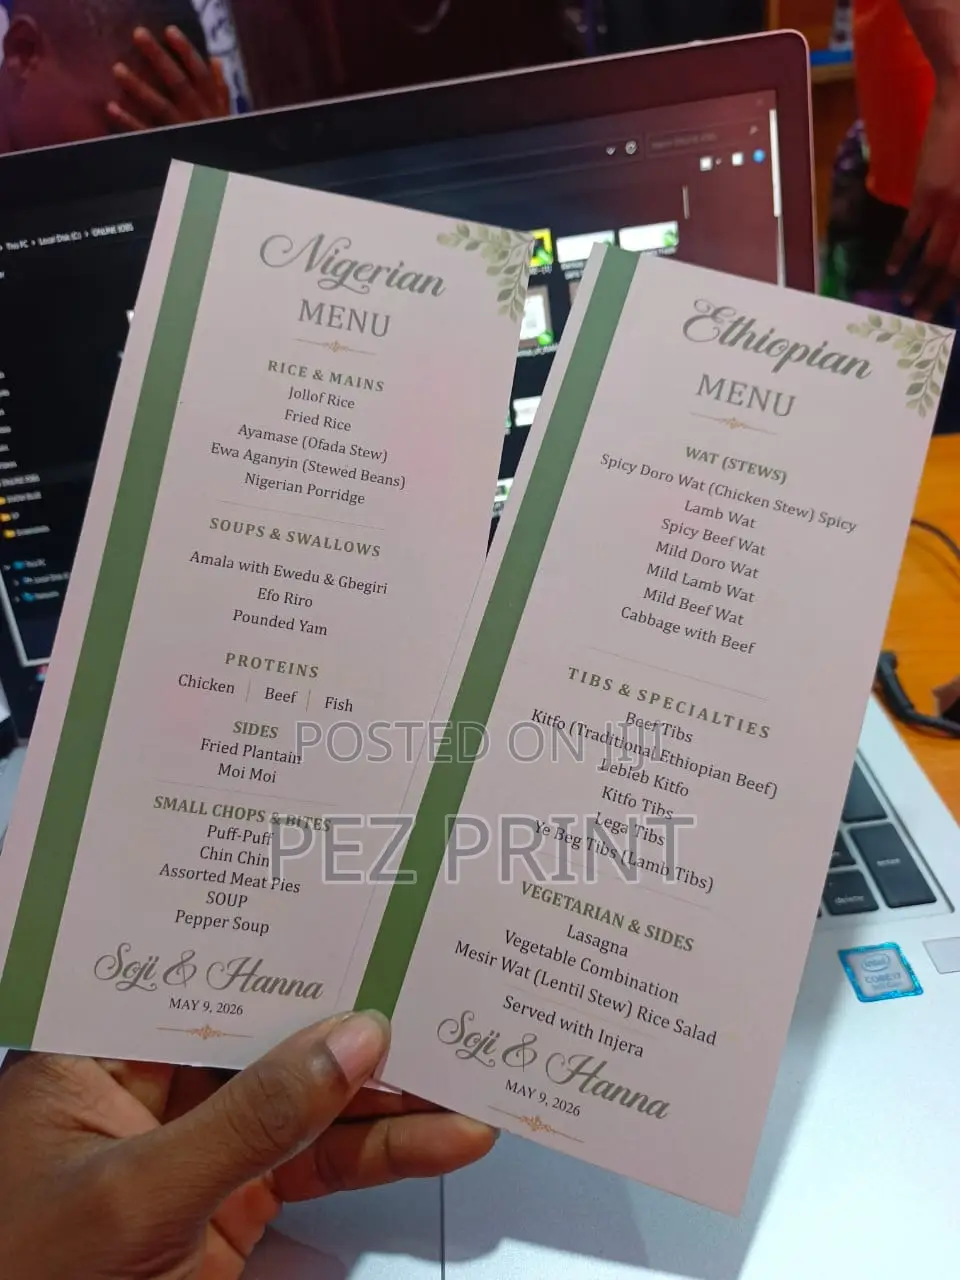 This PC > Local Disk (C:) > ONLINE JOBS
Nigerian
MENU
RICE & MAINS
Jollof Rice
Fried Rice
Ayamase (Ofada Stew)
Ewa Aganyin (Stewed Beans)
Nigerian Porridge
SOUPS & SWALLOWS
Amala with Ewedu & Gbegiri
Efo Riro
Pounded Yam
PROTEINS
Chicken | Beef | Fish
SIDES
Fried Plantain
Moi Moi
SMALL CHOPS & BITES
Puff-Puff
Chin Chin
Assorted Meat Pies
SOUP
Pepper Soup
Soji & Hanna
MAY 9, 2026
Ethiopian
MENU
WAT (STEWS)
Spicy Doro Wat (Chicken Stew) Spicy
Lamb Wat
Spicy Beef Wat
Mild Doro Wat
Mild Lamb Wat
Mild Beef Wat
Cabbage with Beef
TIBS & SPECIALTIES
Beef Tibs
Kitfo (Traditional Ethiopian Beef)
Lebleb Kitfo
Kitfo Tibs
Lega Tibs
Ye Beg Tibs (Lamb Tibs)
VEGETARIAN & SIDES
Lasagna
Vegetable Combination
Mesir Wat (Lentil Stew) Rice Salad
Served with Injera
Soji & Hanna
MAY 9, 2026
POSTED ON JIJI
PEZ PRINT
enter
delete
intel
CORE i7